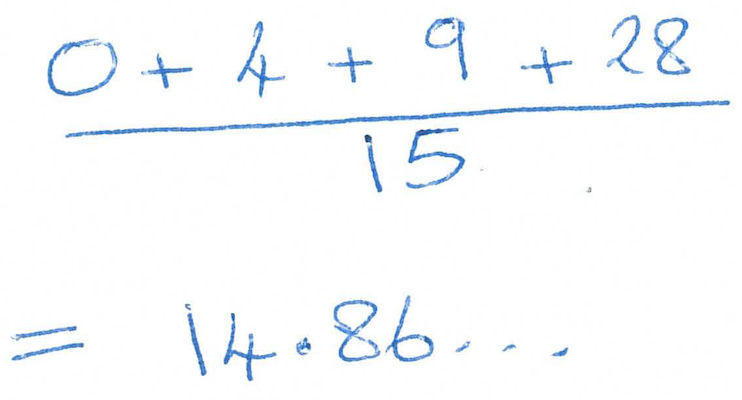 0 + 4 + 9 + 28
15
= 14.86...